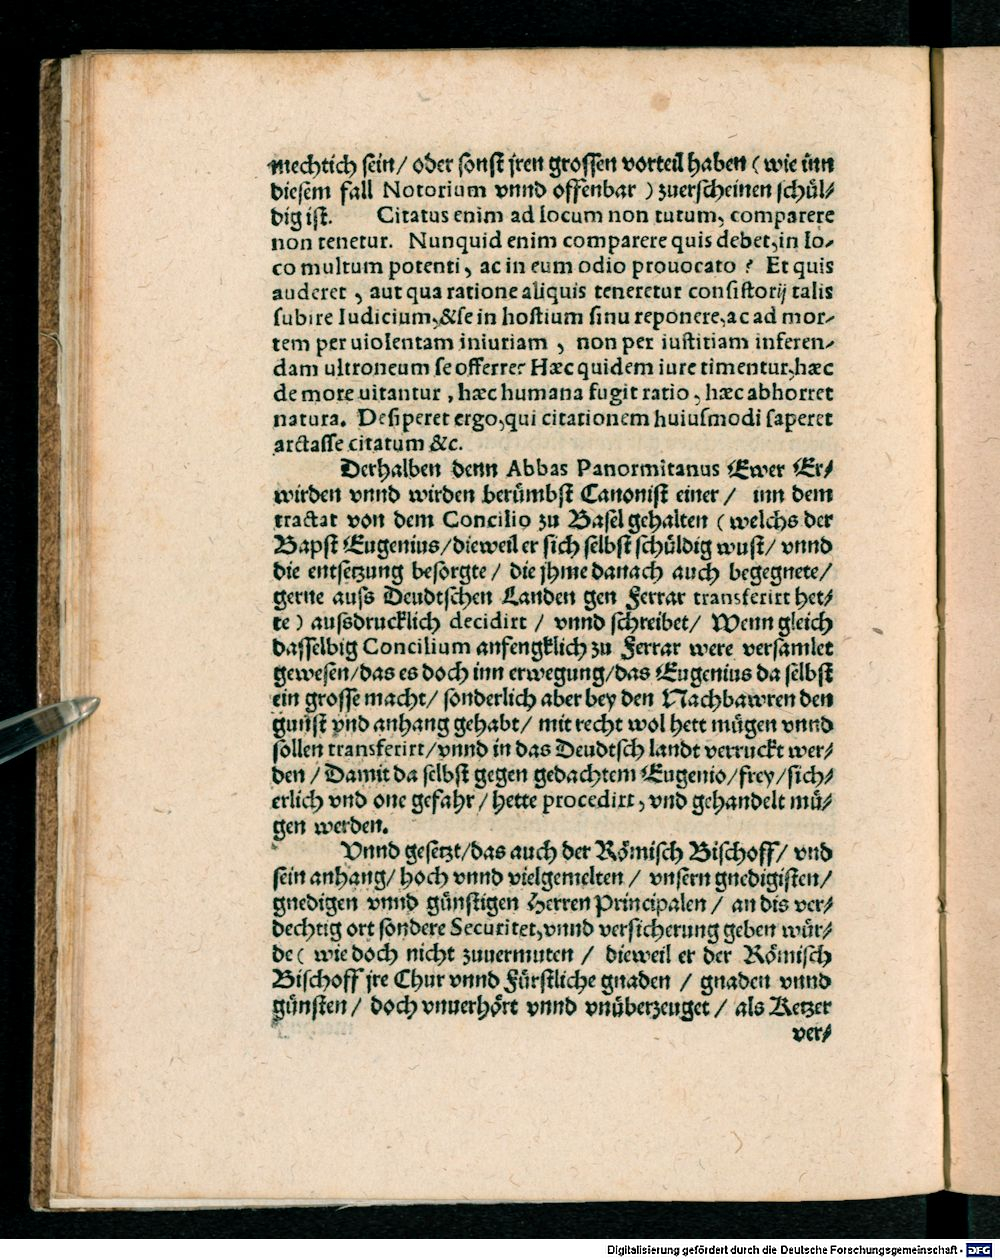 mechtich sein/ oder sonst jren grossen vorteil haben ( wie inn
diesem fall Notorium vnnd offenbar ) zuerscheinen schül⸗
dig ist. Citatus enim ad locum non tutum, comparere
non tenetur. Nunquid enim comparere quis debet, in lo⸗
co multum potenti, ac in eum odio prouocato ? Et quis
auderet, aut qua ratione aliquis teneretur consistorij talis
subire Iudicium, &se in hostium sinu reponere, ac ad mor⸗
tem per uiolentam iniuriam, non per iustitiam inferen⸗
dam ultroneum se offerre? Hæc quidem iure timentur, hæc
de more uitantur, hæc humana fugit ratio, hæc abhorret
natura. Desiperet ergo, qui citationem huiusmodi saperet
arctasse citatum &c.
Derhalben denn Abbas Panormitanus Ewer Er⸗
wirden vnnd wirden berümbst Canonist einer/ inn dem
tractat von dem Concilio zu Basel gehalten ( welchs der
Bapst Eugenius/ dieweil er sich selbst schüldig wust/ vnnd
die entsetzung besorgte/ die jhme danach auch begegnete/
gerne auss Deudtschen Landen gen Ferrar transferirt het⸗
te ) aussdrucklich decidirt / vnnd schreibet/ Wenn gleich
dasselbig Concilium anfengklich zu Ferrar were versamlet
gewesen/ das es doch inn erwegung/ das Eugenius da selbst
ein grosse macht/ sonderlich aber bey den Nachbawren den
gunst vnd anhang gehabt/ mit recht wol hett mügen vnnd
sollen transferirt/ vnnd in das Deudtsch landt verruckt wer⸗
den / Damit da selbst gegen gedachtem Eugenio/ frey/ sich⸗
erlich vnd one gefahr/ hette procedirt, vnd gehandelt mü⸗
gen werden.
Vnnd gesetzt/ das auch der Römisch Bischoff/ vnd
sein anhang/ hoch vnnd vielgemelten / vnsern gnedigisten/
gnedigen vnnd günstigen Herren Principalen / an dis ver⸗
dechtig ort sondere Securitet, vnnd versicherung geben wür⸗
de ( wie doch nicht zuuermuten / dieweil er der Römisch
Bischoff jre Chur vnnd Fürstliche gnaden / gnaden vnnd
günsten / doch vnuerhört vnnd vnüberzeuget / als Ketzer
ver⸗
Digitalisierung gefördert durch die Deutsche Forschungsgemeinschaft - DFG